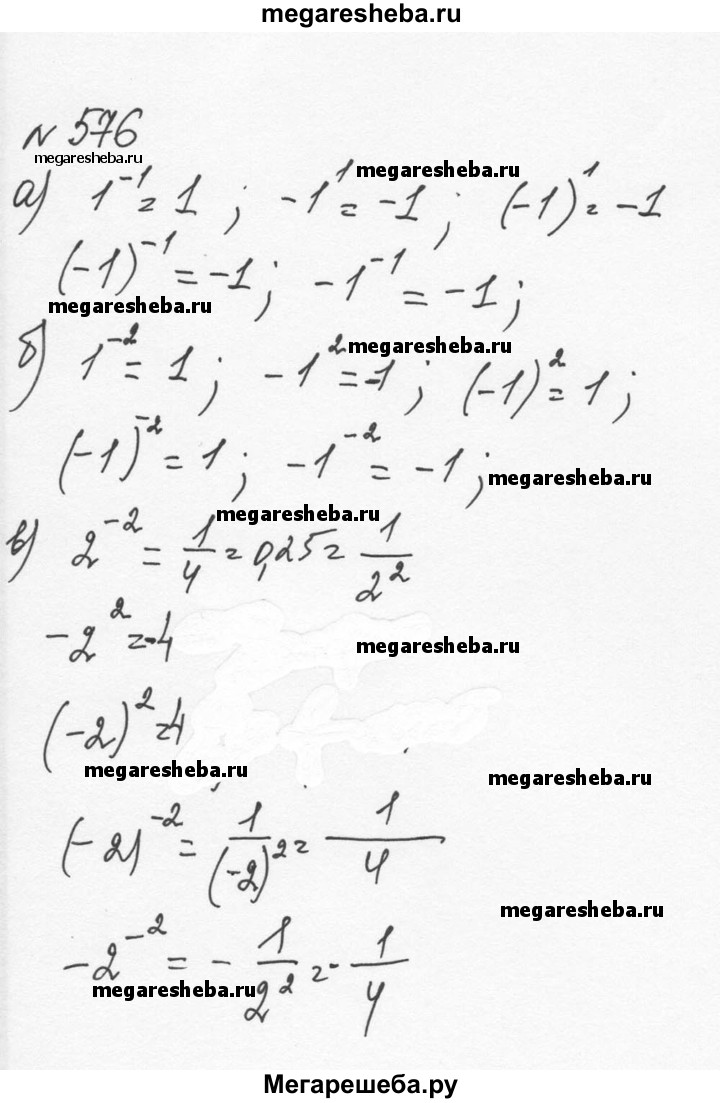 megaresheba.ru
№ 576
megaresheba.ru
megaresheba.ru
а) 1⁻¹ = 1 ; -1¹ = -1 ; (-1)¹ = -1
(-1)⁻¹ = -1 ; -1⁻¹ = -1 ;
megaresheba.ru
megaresheba.ru
б) 1⁻² = 1 ; -1² = -1 ; (-1)² = 1 ;
(-1)⁻² = 1 ; -1⁻² = -1 ;
megaresheba.ru
megaresheba.ru
в) 2⁻² = 1/4 = 0,25 = 1/2²
-2² = -4
megaresheba.ru
(-2)² = 4
megaresheba.ru
megaresheba.ru
(-2)⁻² = 1/(-2)² = 1/4
megaresheba.ru
-2⁻² = - 1/2² = - 1/4
megaresheba.ru
Мегарешеба.ру